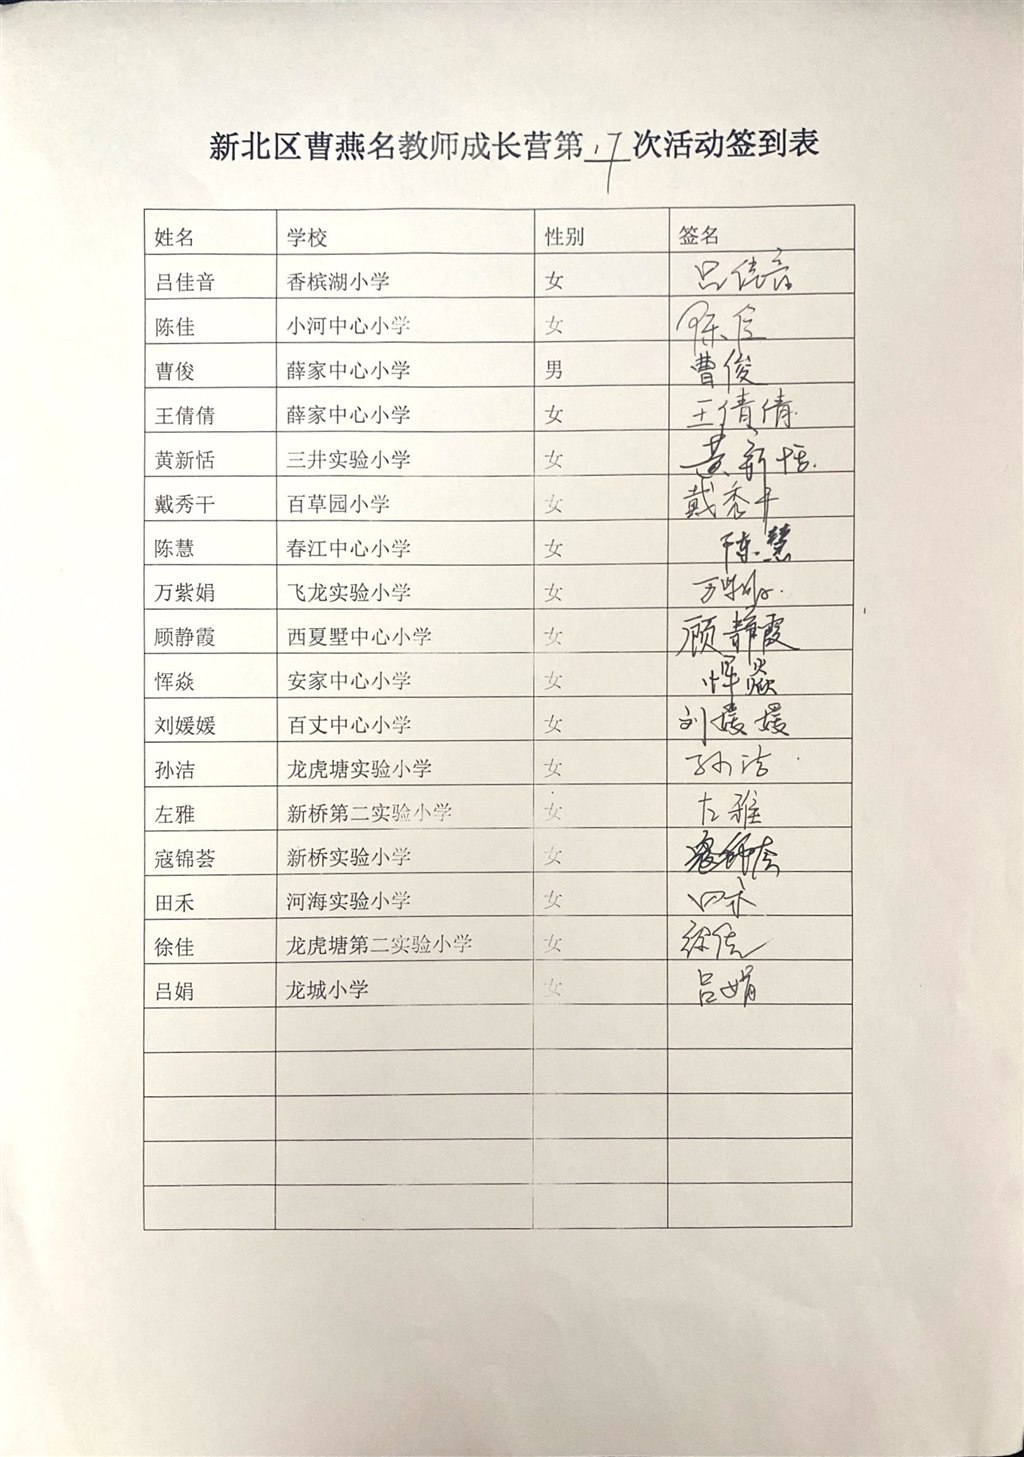 新北区曹燕名教师成长营第17次活动签到表
姓名 学校 性别 签名
吕佳音 香槟湖小学 女 吕佳音
陈佳 小河中心小学 女 陈佳
曹俊 薛家中心小学 男 曹俊
王倩倩 薛家中心小学 女 王倩倩
黄新恬 三井实验小学 女 黄新恬
戴秀干 百草园小学 女 戴秀干
陈慧 春江中心小学 女 陈慧
万紫娟 飞龙实验小学 女 万紫娟
顾静霞 西夏墅中心小学 女 顾静霞
恽焱 安家中心小学 女 恽焱
刘媛媛 百丈中心小学 女 刘媛媛
孙洁 龙虎塘实验小学 女 孙洁
左雅 新桥第二实验小学 女 左雅
寇锦荟 新桥实验小学 女 寇锦荟
田禾 河海实验小学 女 田禾
徐佳 龙虎塘第二实验小学 女 徐佳
吕娟 龙城小学 女 吕娟